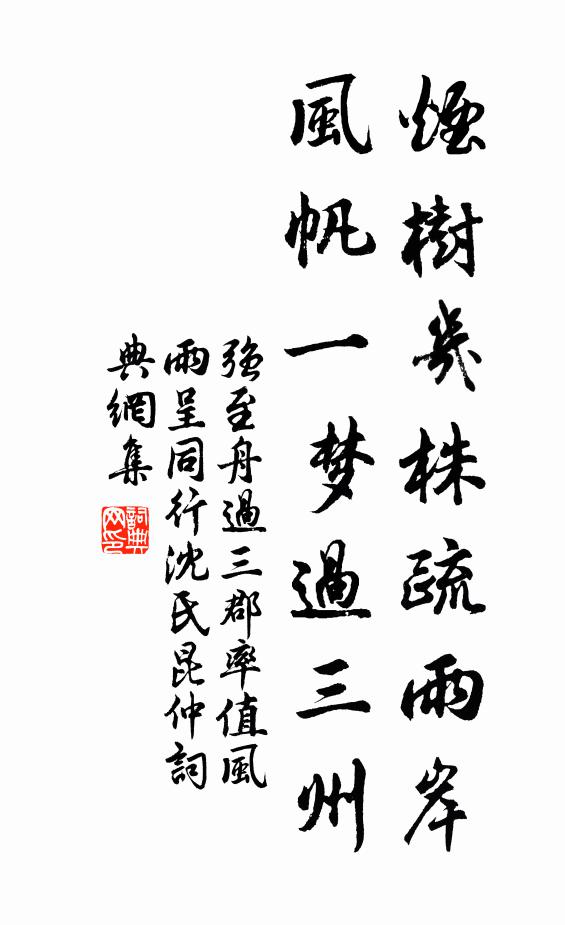 煙樹幾株疏兩岸
風帆一梦過三州
强至舟過三郡率值風
雨呈同行沈氏昆仲詞
典網集
詞典
网印